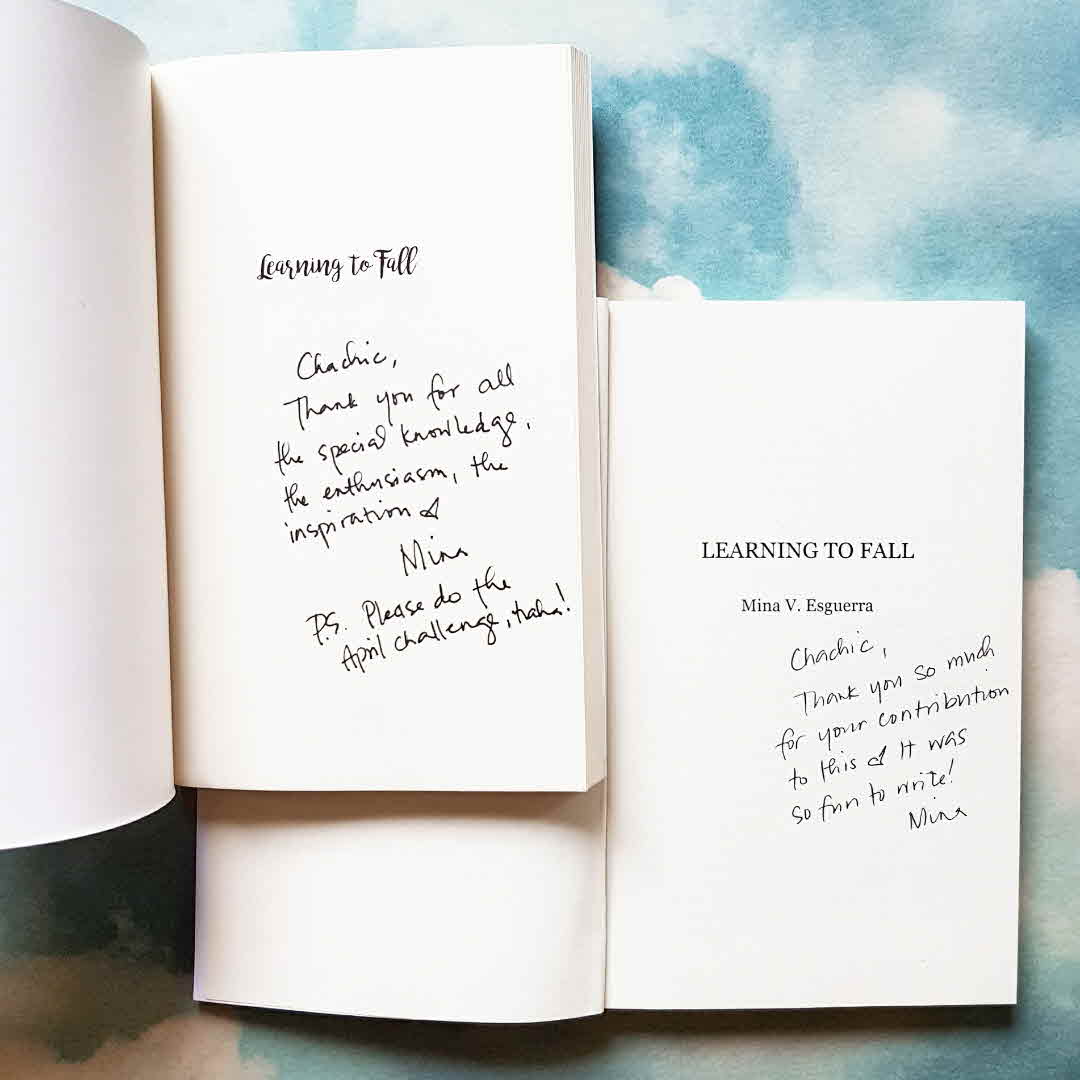 Learning to Fall
Chachic,
Thank you for all
the special knowledge,
the enthusiasm, the
inspiration
Mina
P.S. Please do the
April challenge, haha!
LEARNING TO FALL
Mina V. Esguerra
Chachic,
Thank you so much
for your contribution
to this It was
so fun to write!
Mina